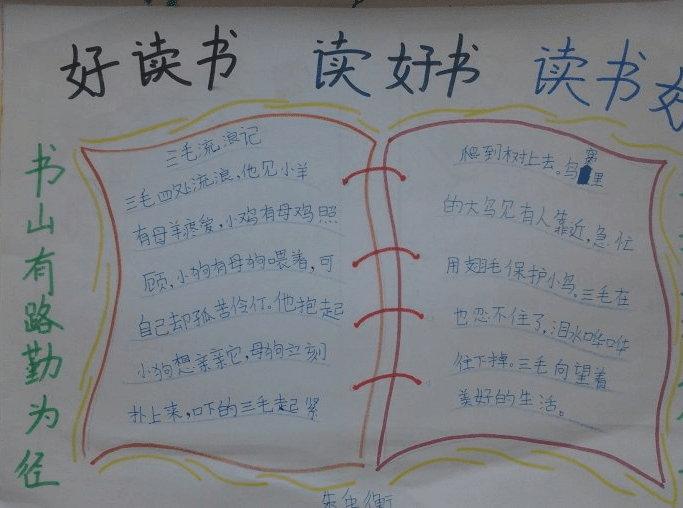 好读书 读好书 读书好
书山有路勤为径
三毛流浪记
三毛四处流浪,他见小羊
有母羊疼爱,小鸡有母鸡照
顾,小狗有母狗喂着,可
自己却孤苦伶仃。他抱起
小狗想亲亲它,母狗立刻
扑上来,吓的三毛起紧
爬到树上去。鸟窝里
的大鸟见有人靠近,急忙
用翅毛保护小鸟。三毛在
也忍不住了,泪水哗哗
往下掉。三毛向望着
美好的生活。